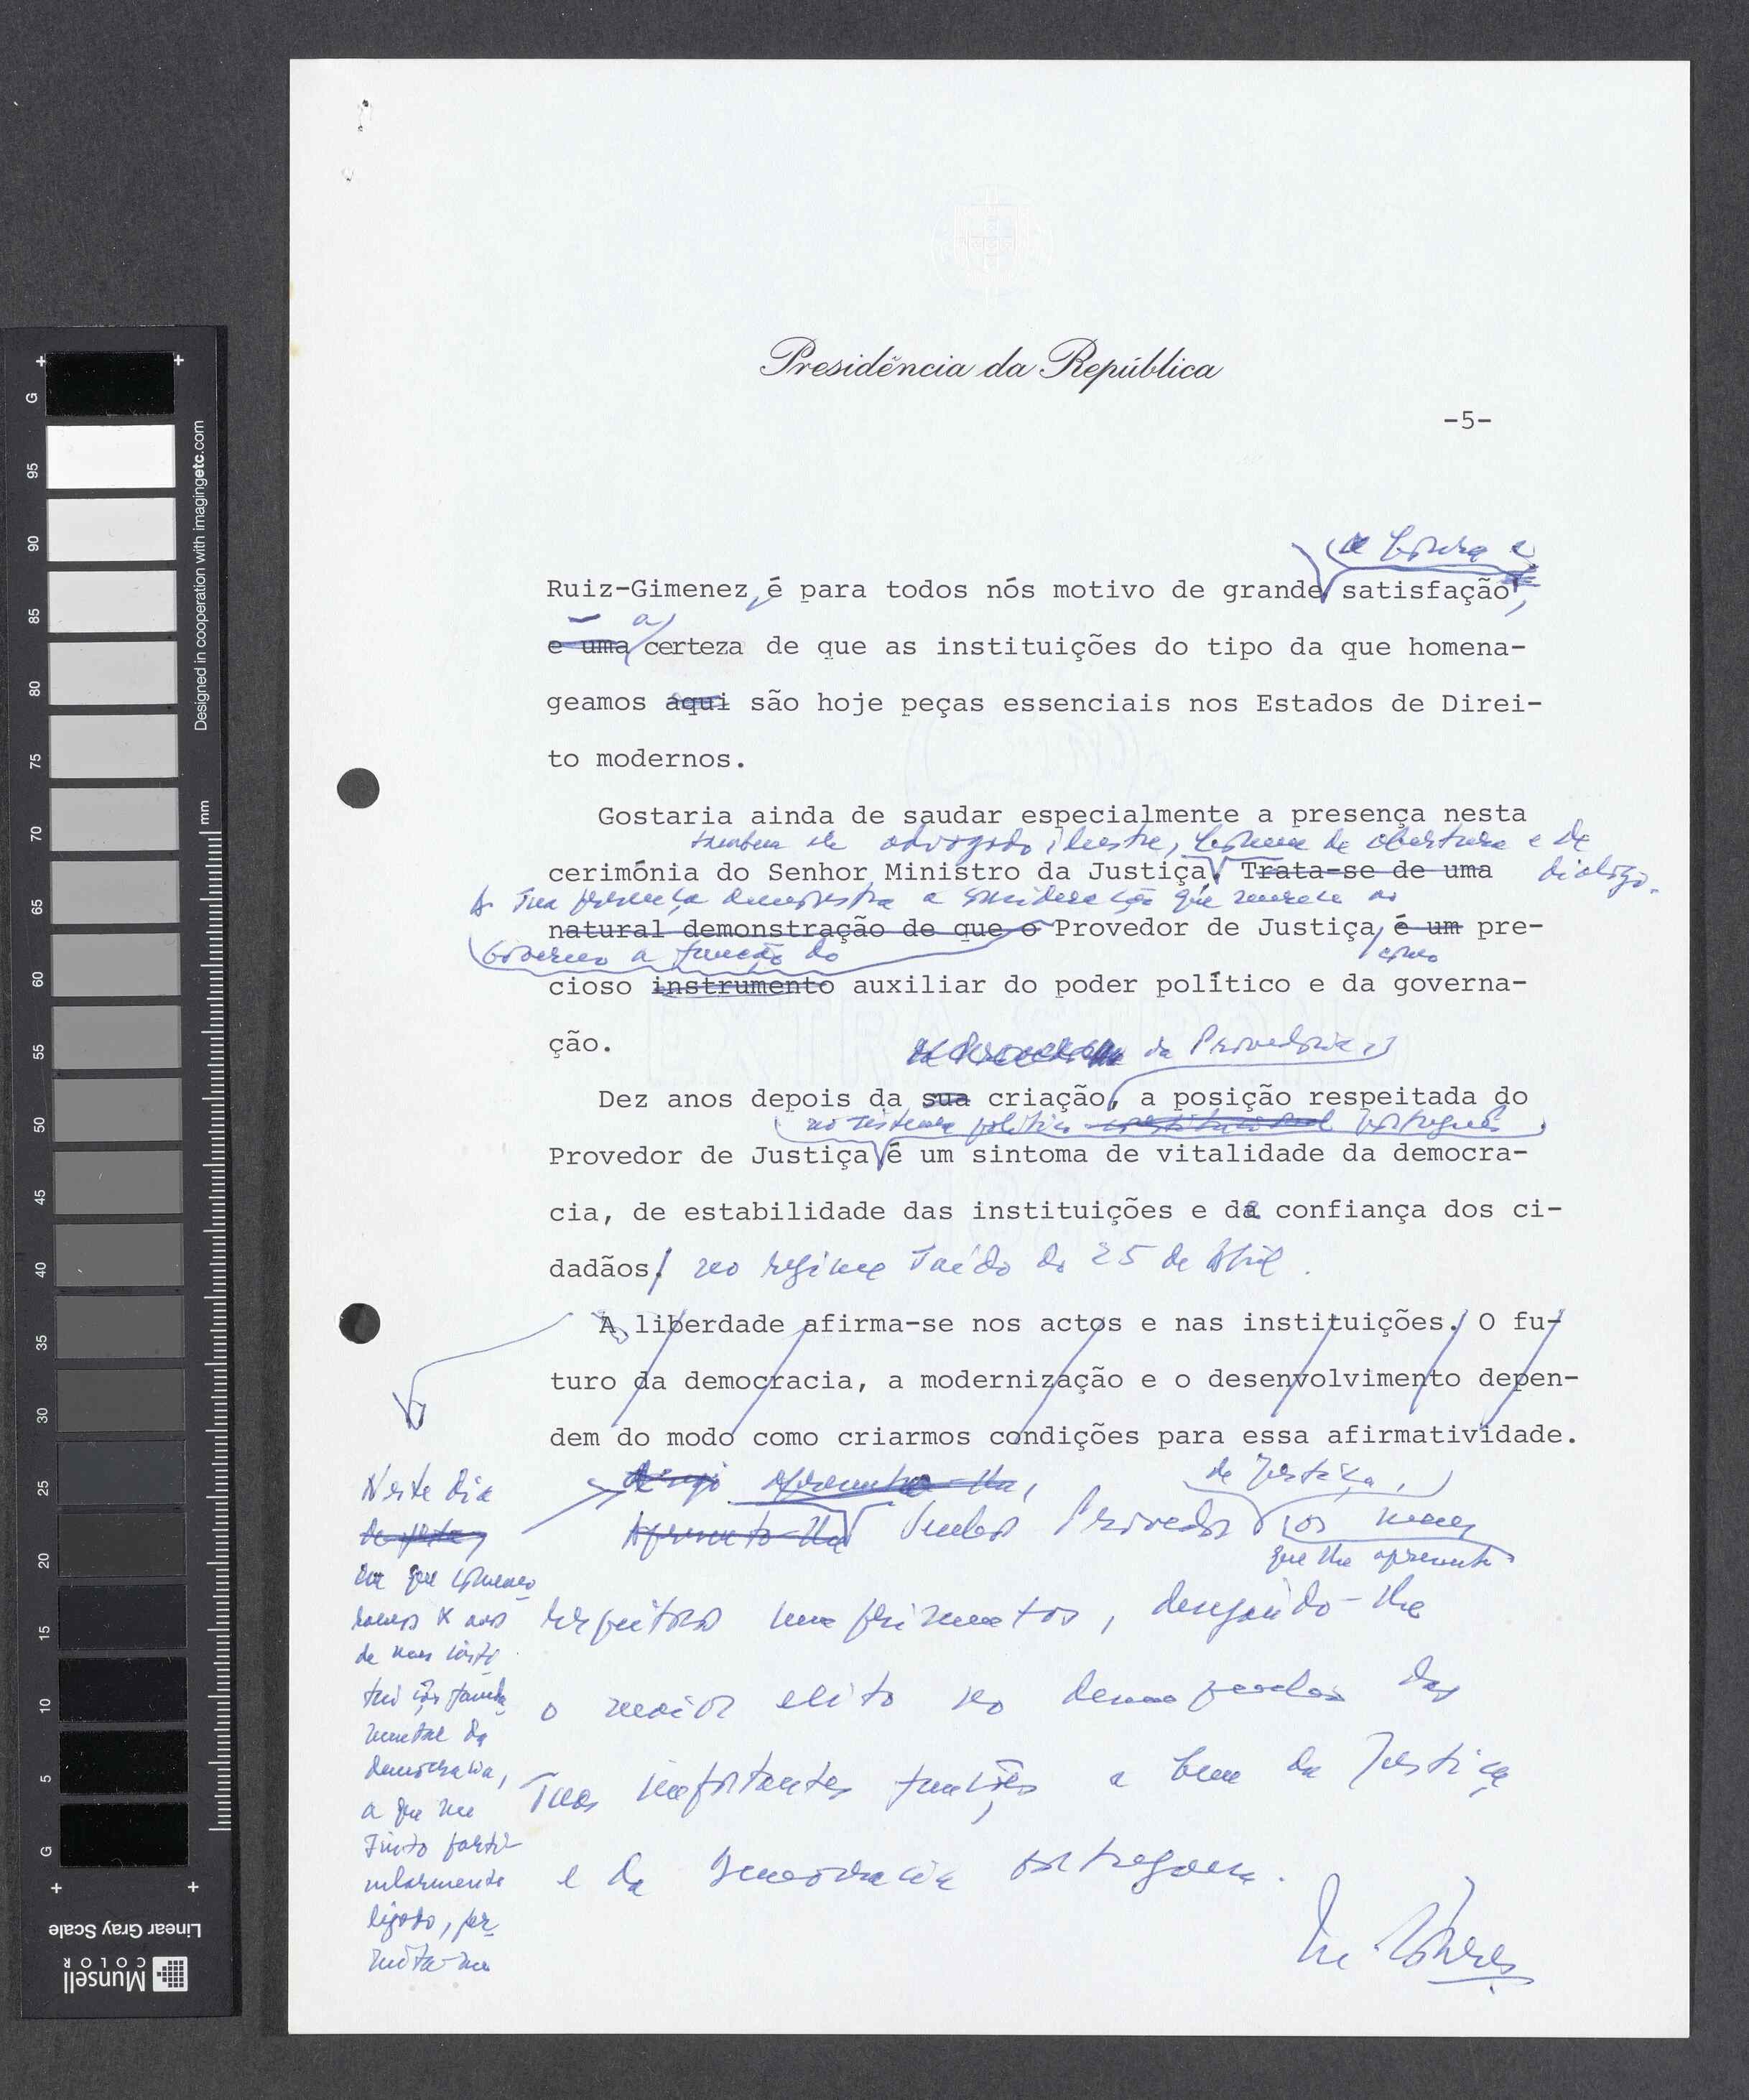 Presidência da República
-5-
de honra e
Ruiz-Gimenez, é para todos nós motivo de grande satisfação,
- a
e uma certeza de que as instituições do tipo da que homena-
geamos aqui são hoje peças essenciais nos Estados de Direi-
to modernos.
Gostaria ainda de saudar especialmente a presença nesta
também ele advogado ilustre, homem de abertura e de
cerimónia do Senhor Ministro da Justiça. Trata-se de uma
diálogo.
A sua presença demonstra a consideração que merece ao
natural demonstração de que o Provedor de Justiça, é um pre-
Governo a função do
como
cioso instrumento auxiliar do poder político e da governa-
ção.
da Provedoria,
Dez anos depois da sua criação, a posição respeitada do
no sistema político constitucional português
Provedor de Justiça é um sintoma de vitalidade da democra-
cia, de estabilidade das instituições e da confiança dos ci-
dadãos. no regime saído do 25 de Abril.
A liberdade afirma-se nos actos e nas instituições. O fu-
turo da democracia, a modernização e o desenvolvimento depen-
dem do modo como criarmos condições para essa afirmatividade.
Neste dia
em que comemo-
ramos X anos
de uma insti-
tuição funda-
mental da
democracia,
a que me
sinto parti-
cularmente
ligado, per-
mita-me
apresento-lhe,
de Justiça,
Apresento-lhe Senhor Provedor os meus
que lhe apresente
respeitosos cumprimentos, desejando-lhe
o maior êxito no desempenho das
suas importantes funções a bem da Justiça
e da Democracia portuguesa.
M. Soares
EXTRA STRONG
G
95
90
85
80
75
70
65
60
55
50
45
40
35
30
25
20
15
10
5
G
mm
Designed in cooperation with imagingetc.com
Linear Gray Scale
Munsell
COLOR